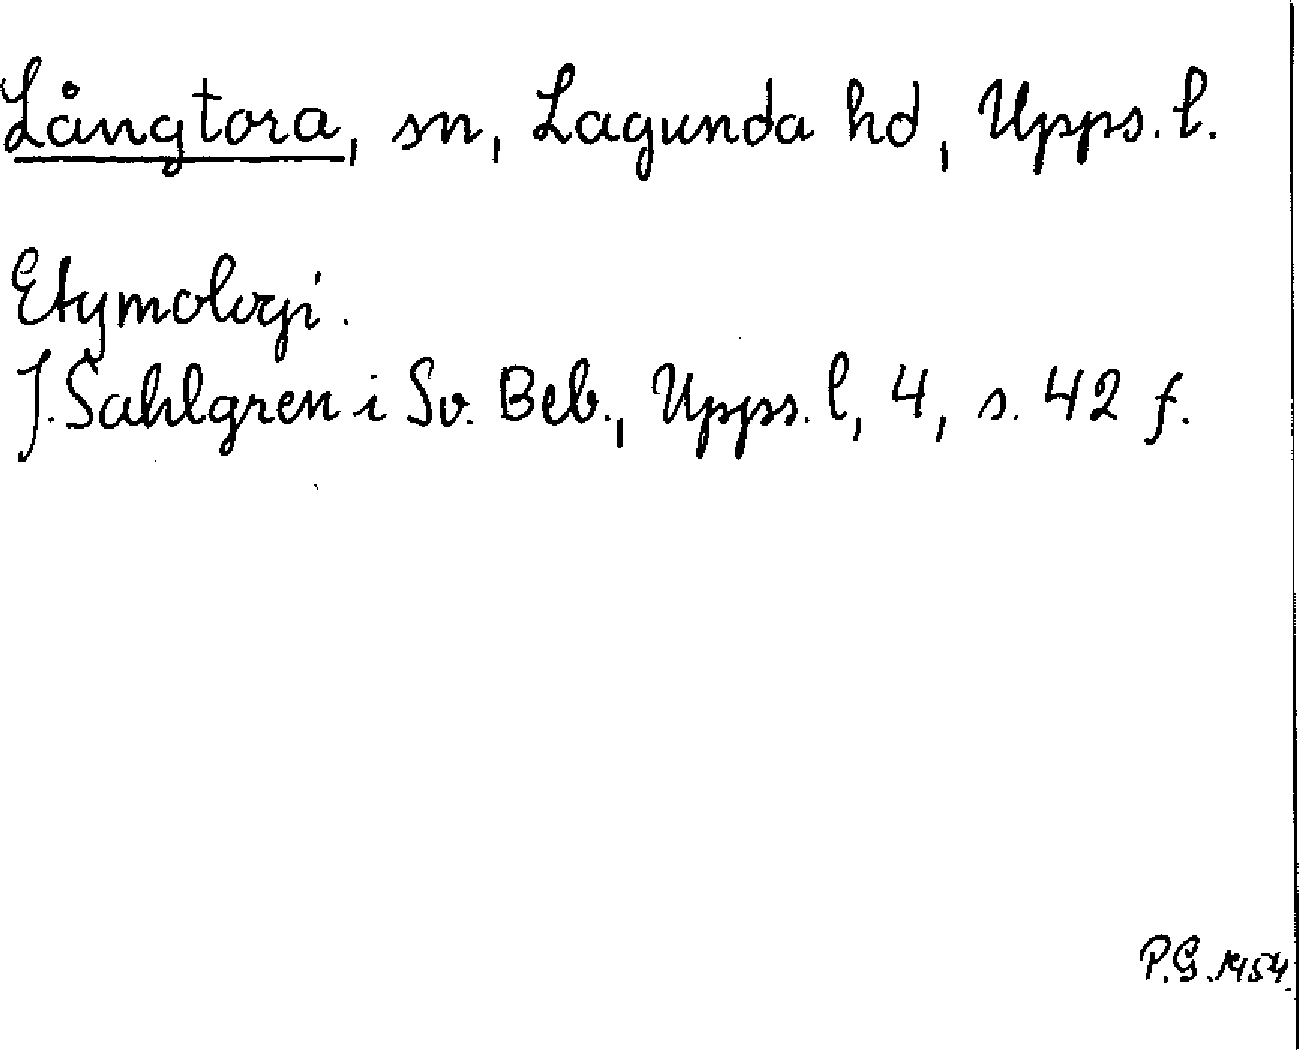 Långtora, sn, Lagunda hd, Upps. l.
Etymologi.
J. Sahlgren i Sv. Beb., Upps. l, 4, s. 42 f.
P.G. 1954.